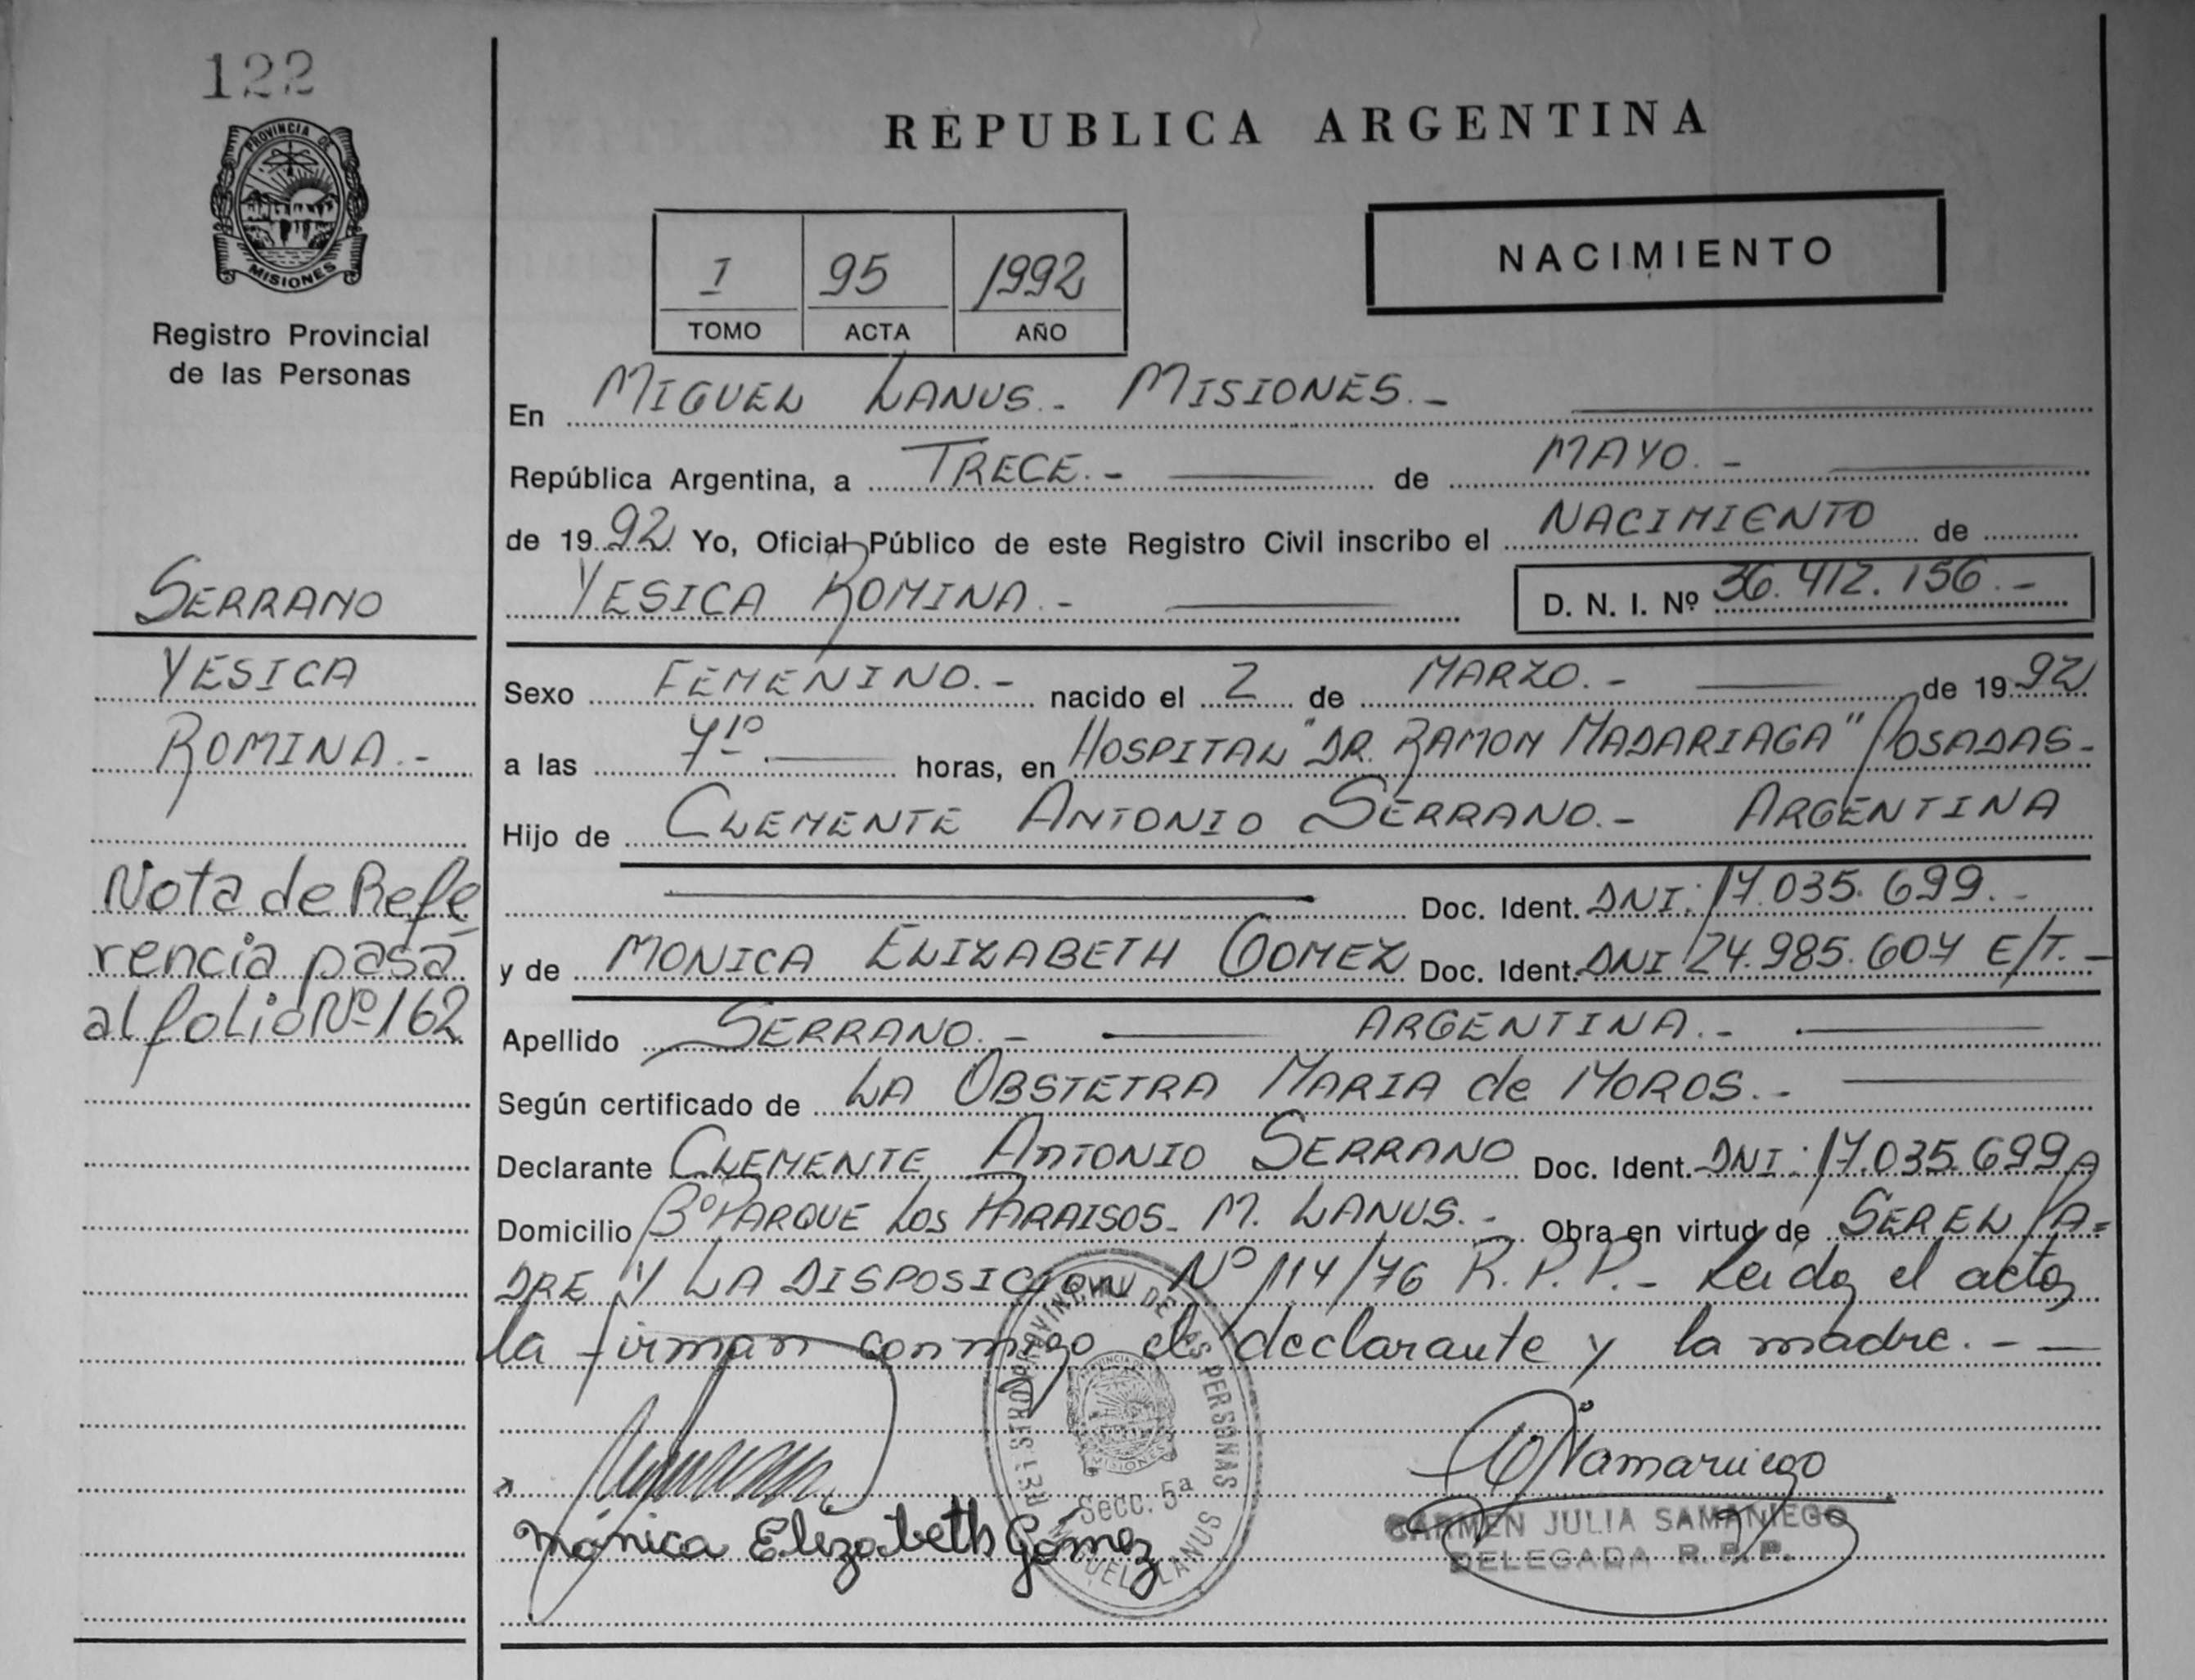 122
PROVINCIA DE
MISIONES
Registro Provincial
de las Personas
SERRANO
YESICA
ROMINA.-
Nota de Refe
rencia pasa
al folio Nº 162
REPUBLICA ARGENTINA
NACIMIENTO
I 95 1992
TOMO ACTA AÑO
En MIGUEL LANUS.- MISIONES.-
República Argentina, a TRECE.- de MAYO.-
de 1992 Yo, Oficial Público de este Registro Civil inscribo el NACIMIENTO de
YESICA ROMINA.- D. N. I. Nº 36.412.156.-
Sexo FEMENINO.- nacido el 2 de MARZO.- de 1992
a las 7¹⁰ horas, en HOSPITAL "DR. RAMON MADARIAGA" POSADAS-
Hijo de CLEMENTE ANTONIO SERRANO.- ARGENTINA
Doc. Ident. DNI: 17.035.699.-
y de MONICA ELIZABETH GOMEZ Doc. Ident. DNI 24.985.607 E/T.-
Apellido SERRANO.- ARGENTINA.-
Según certificado de LA OBSTETRA MARIA de MOROS.-
Declarante CLEMENTE ANTONIO SERRANO Doc. Ident. DNI: 17.035.699
Domicilio Bº PARQUE LOS PARAISOS- M. LANUS.- Obra en virtud de SER EL PA=
DRE Y LA DISPOSICION Nº 114/76 R.P.P.- Leida el acta
la firman conmigo el declarante y la madre.-
REGISTRO PROVINCIAL DE LAS PERSONAS
PROVINCIA DE
MISIONES
Secc. 5ª
MIGUEL LANUS
Mónica Elizabeth Gómez
CARMEN JULIA SAMANIEGO
DELEGADA R. P. P.